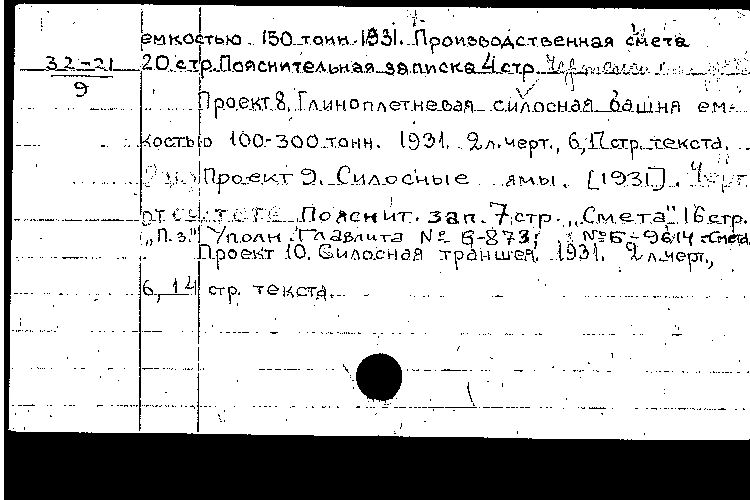 емкостью 150 тонн. 1931. Производственная смета
32-21
9
20 стр. Пояснительная записка 4 стр.
Проект 8. Глиноплетневая силосная башня ем-
костью 100-300 тонн. 1931. 2 л. черт., 6, 17 стр. текста.
Проект 9. Силосные ямы. [1931]. Черт.
отсутств. Пояснит. зап. 7 стр. „Смета" 16 стр.
„П. з." Уполн. Главлита № Б-873; № Б-9614 Смета
Проект 10. Силосная траншея. 1931. 2 л. черт.,
6, 14 стр. текста.